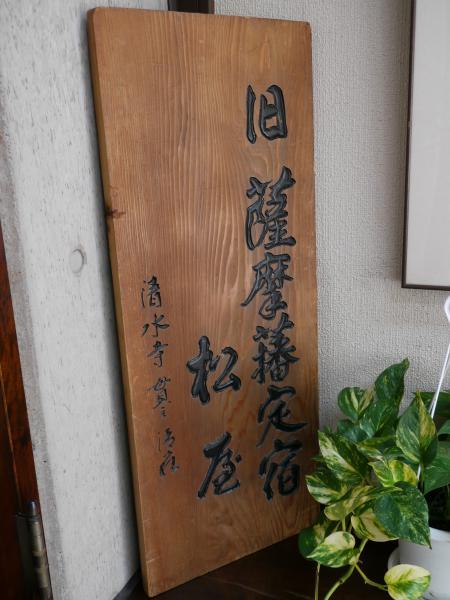 旧薩摩藩定宿
松屋
清水寺貫主